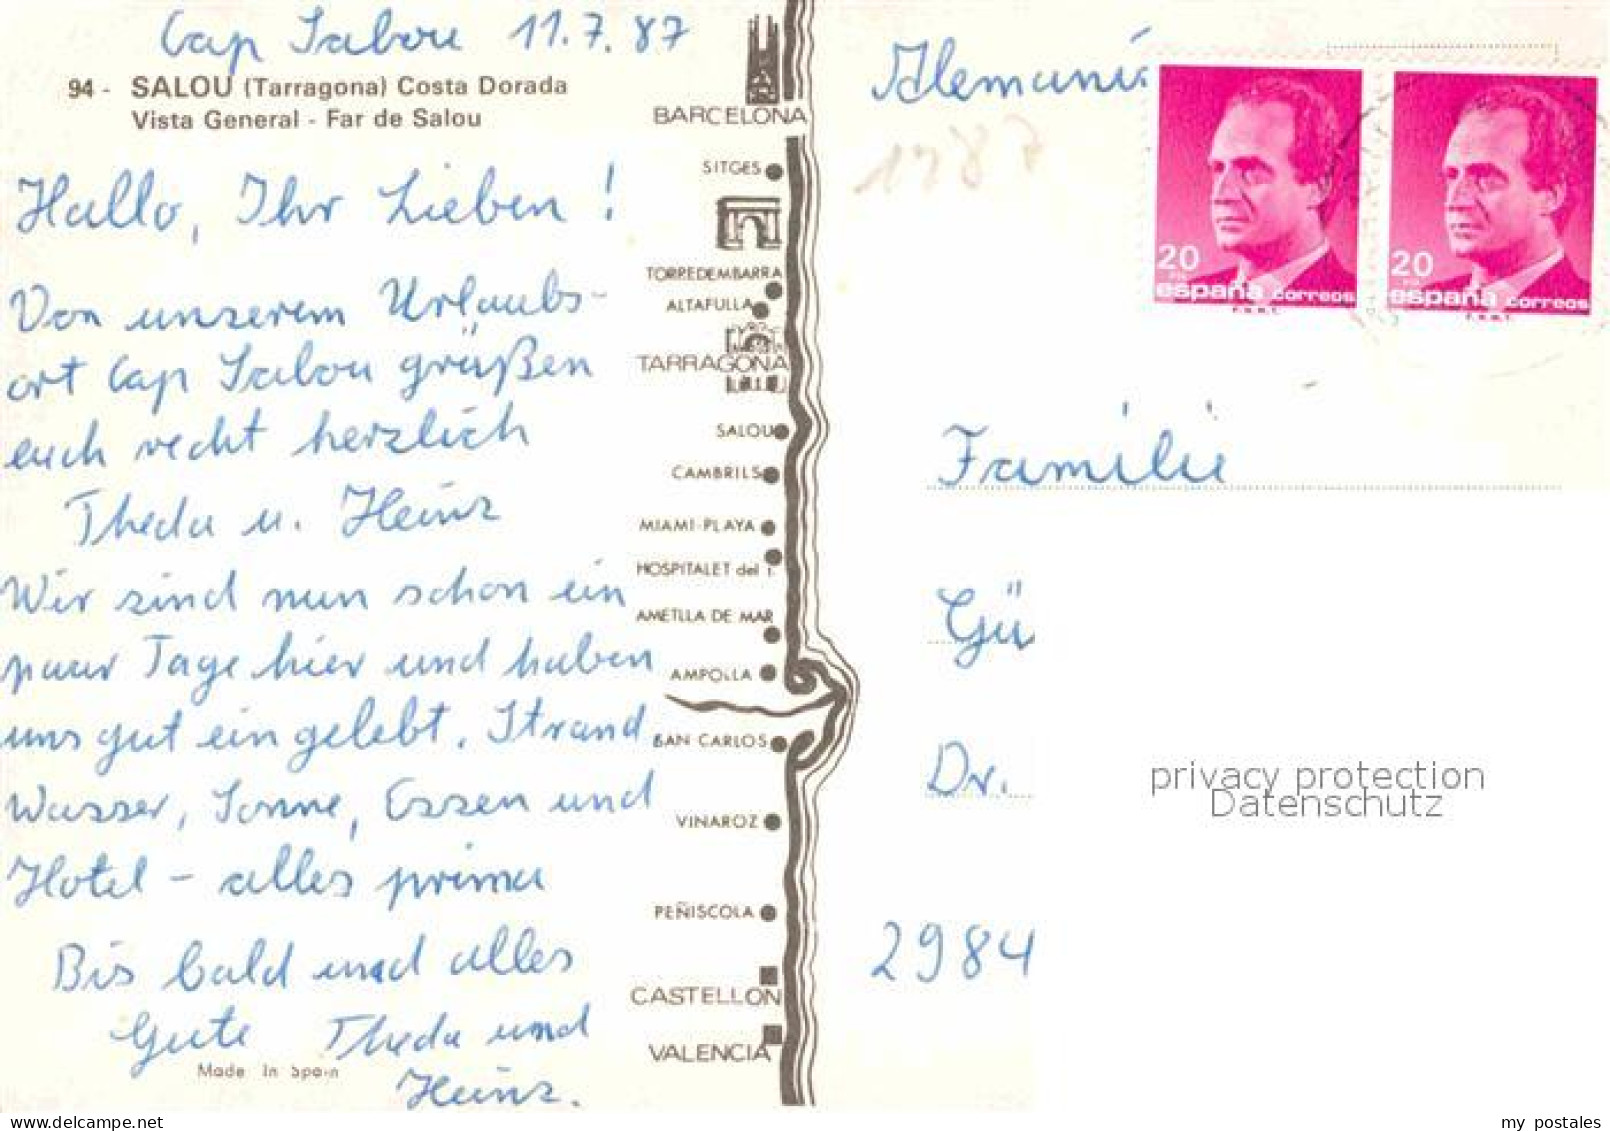 Cap Salou 11.7.87
94 - SALOU (Tarragona) Costa Dorada
Vista General - Far de Salou
Hallo, Ihr Lieben!
Von unserem Urlaubs-
ort Cap Salou grüßen
euch recht herzlich
Theda u. Heinz
Wir sind nun schon ein
paar Tage hier und haben
uns gut eingelebt. Strand
Wasser, Sonne, Essen und
Hotel - alles prima
Bis bald und alles
Gute Theda und
Heinz.
Made in Spain
BARCELONA
SITGES
TORREDEMBARRA
ALTAFULLA
TARRAGONA
SALOU
CAMBRILS
MIAMI-PLAYA
HOSPITALET del I.
AMETLLA DE MAR
AMPOLLA
SAN CARLOS
VINAROZ
PEÑISCOLA
CASTELLON
VALENCIA
Alemania
1987
20
PTA
españa correos
F.N.M.T.
20
PTA
españa correos
F.N.M.T.
Familie
Gü
Dr.
2984
privacy protection
Datenschutz
my postales